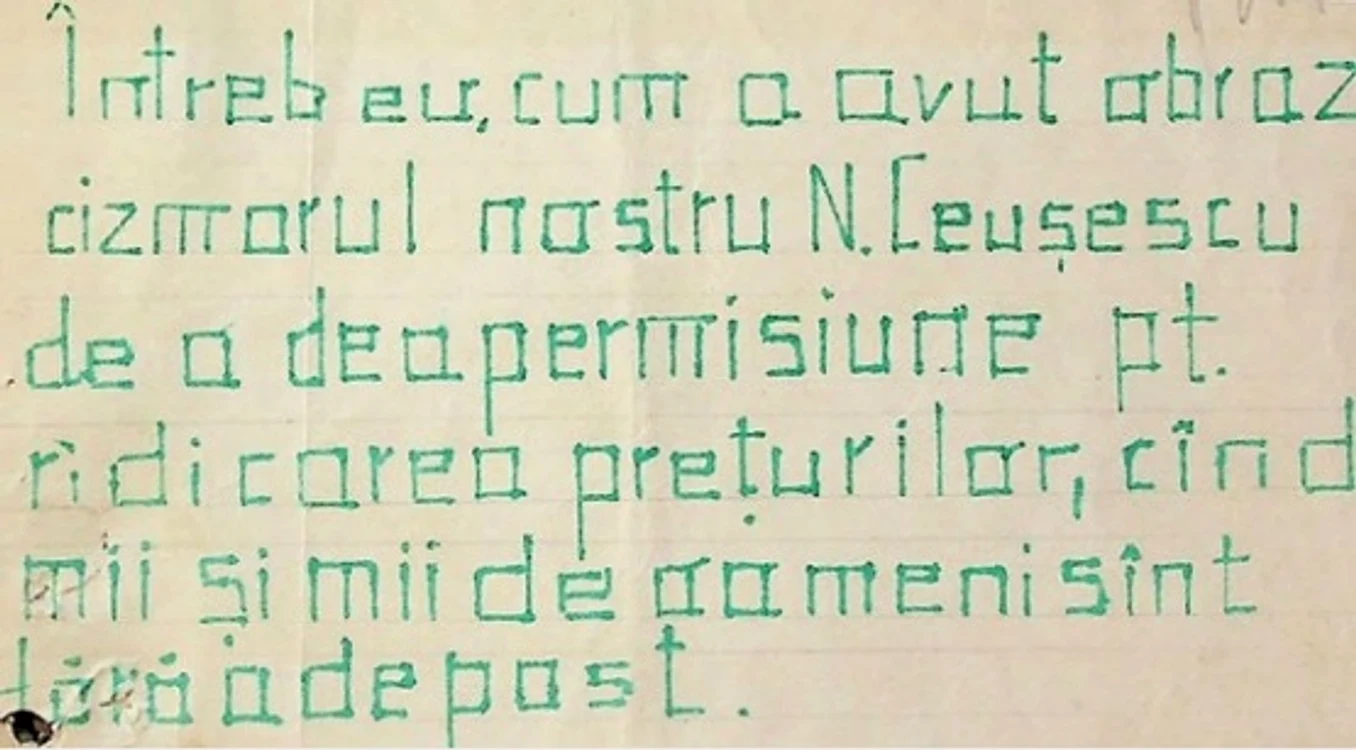 Întreb eu, cum a avut obraz
cizmarul nostru N. Ceușescu
de a dea permisiune pt.
ridicarea prețurilor, cînd
mii și mii de oameni sînt
fără adepost.